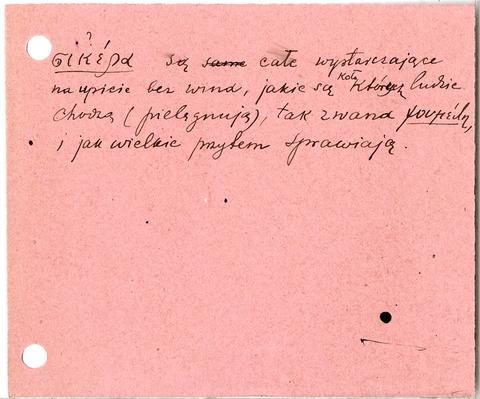 ?
σικέρα są same całe wystarczające
na upicie bez wina, jakie są koło których ludzie
chodzą (pielęgnują), tak zwana ψουμέλη,
i jak wielkie przytem sprawiają.